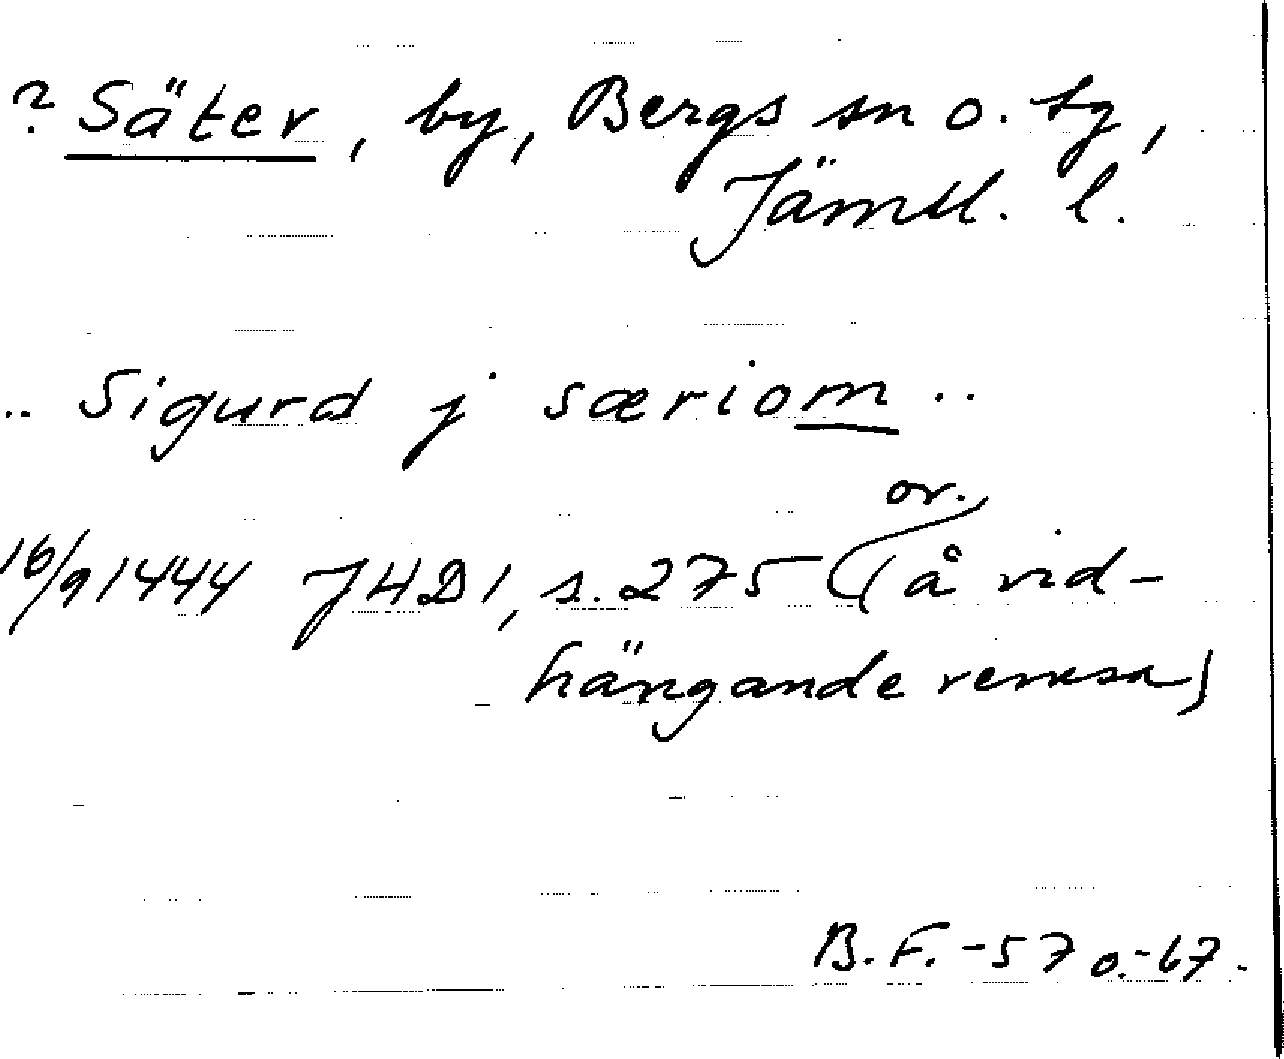 ? Säter, by, Bergs sn o. tg,
Jämtl. l.
.. Sigurd j særiom ..
or.
16/9 1444 JHD 1, s. 275 (å vid-
hängande remsa)
B. F. -57 o. -67.